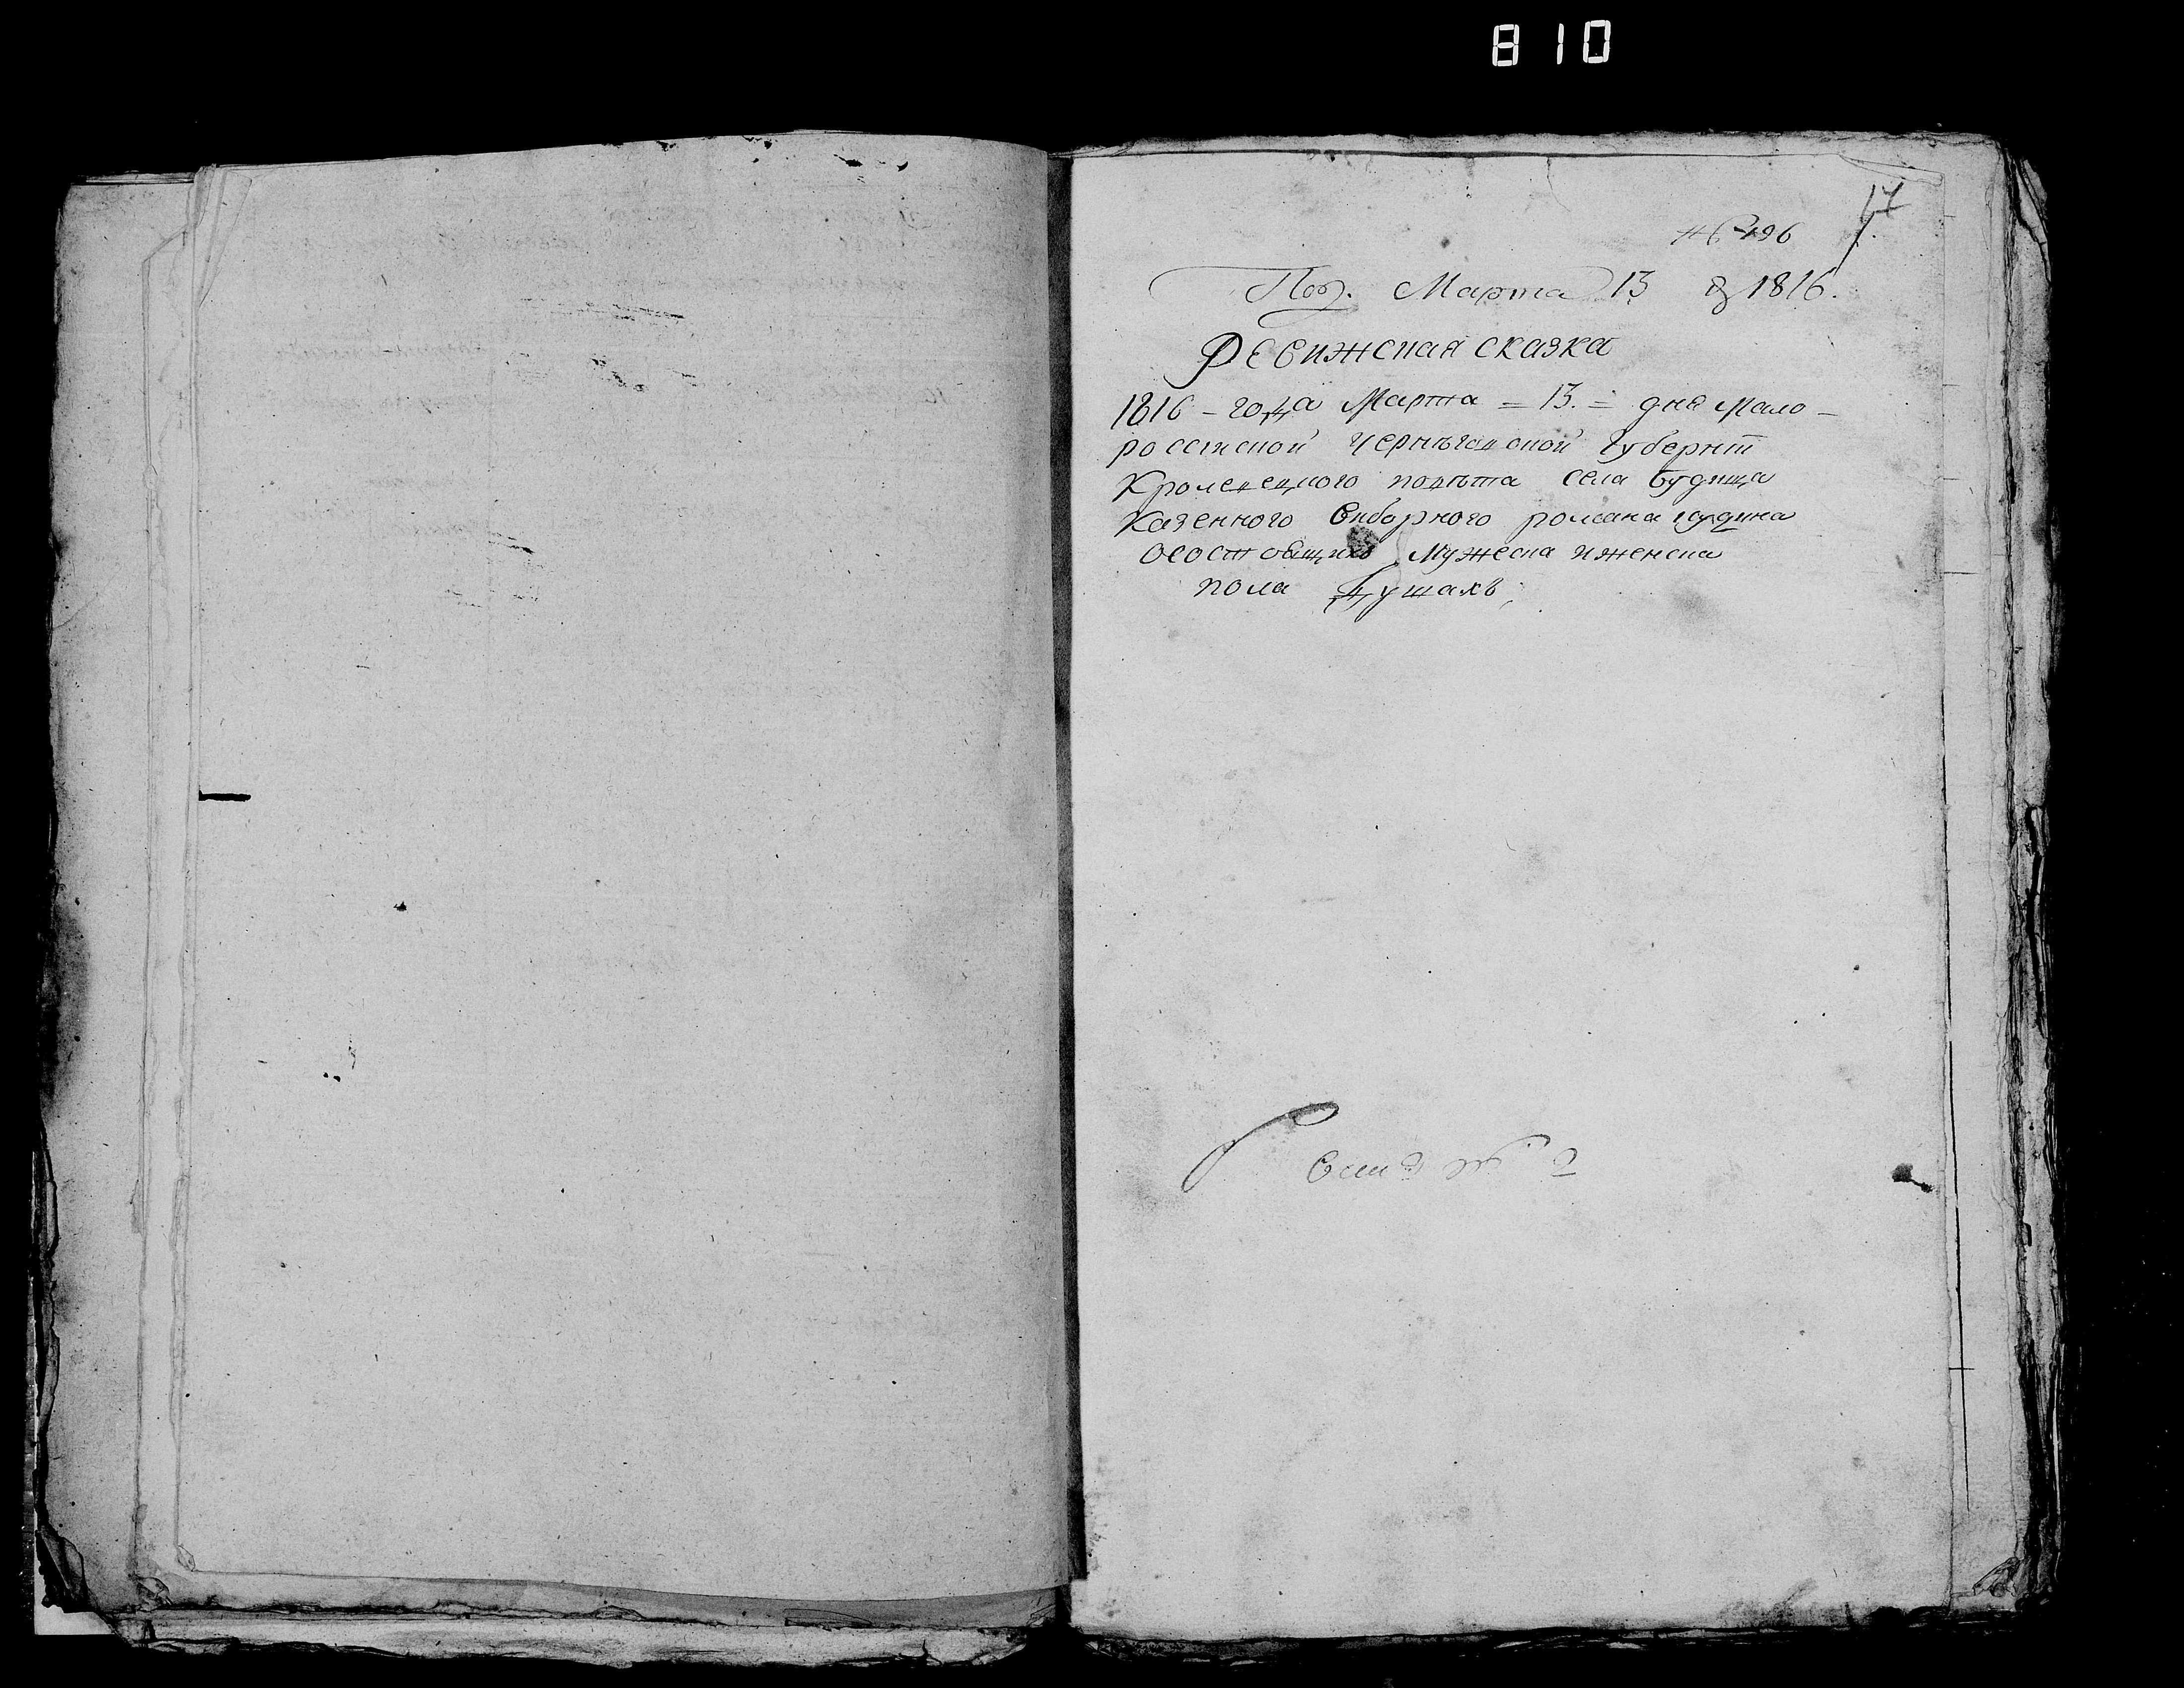 810
17
№ 496
Пол. Марта 13 1816.
Ревижская сказка
1816 – года Марта = 13. = дня мало–
россїской Чернѣговской Губернїи
Кролевецкого повѣта села Будища
казенного выборного романа
о состоящихъ мужеска и женска
пола душахъ